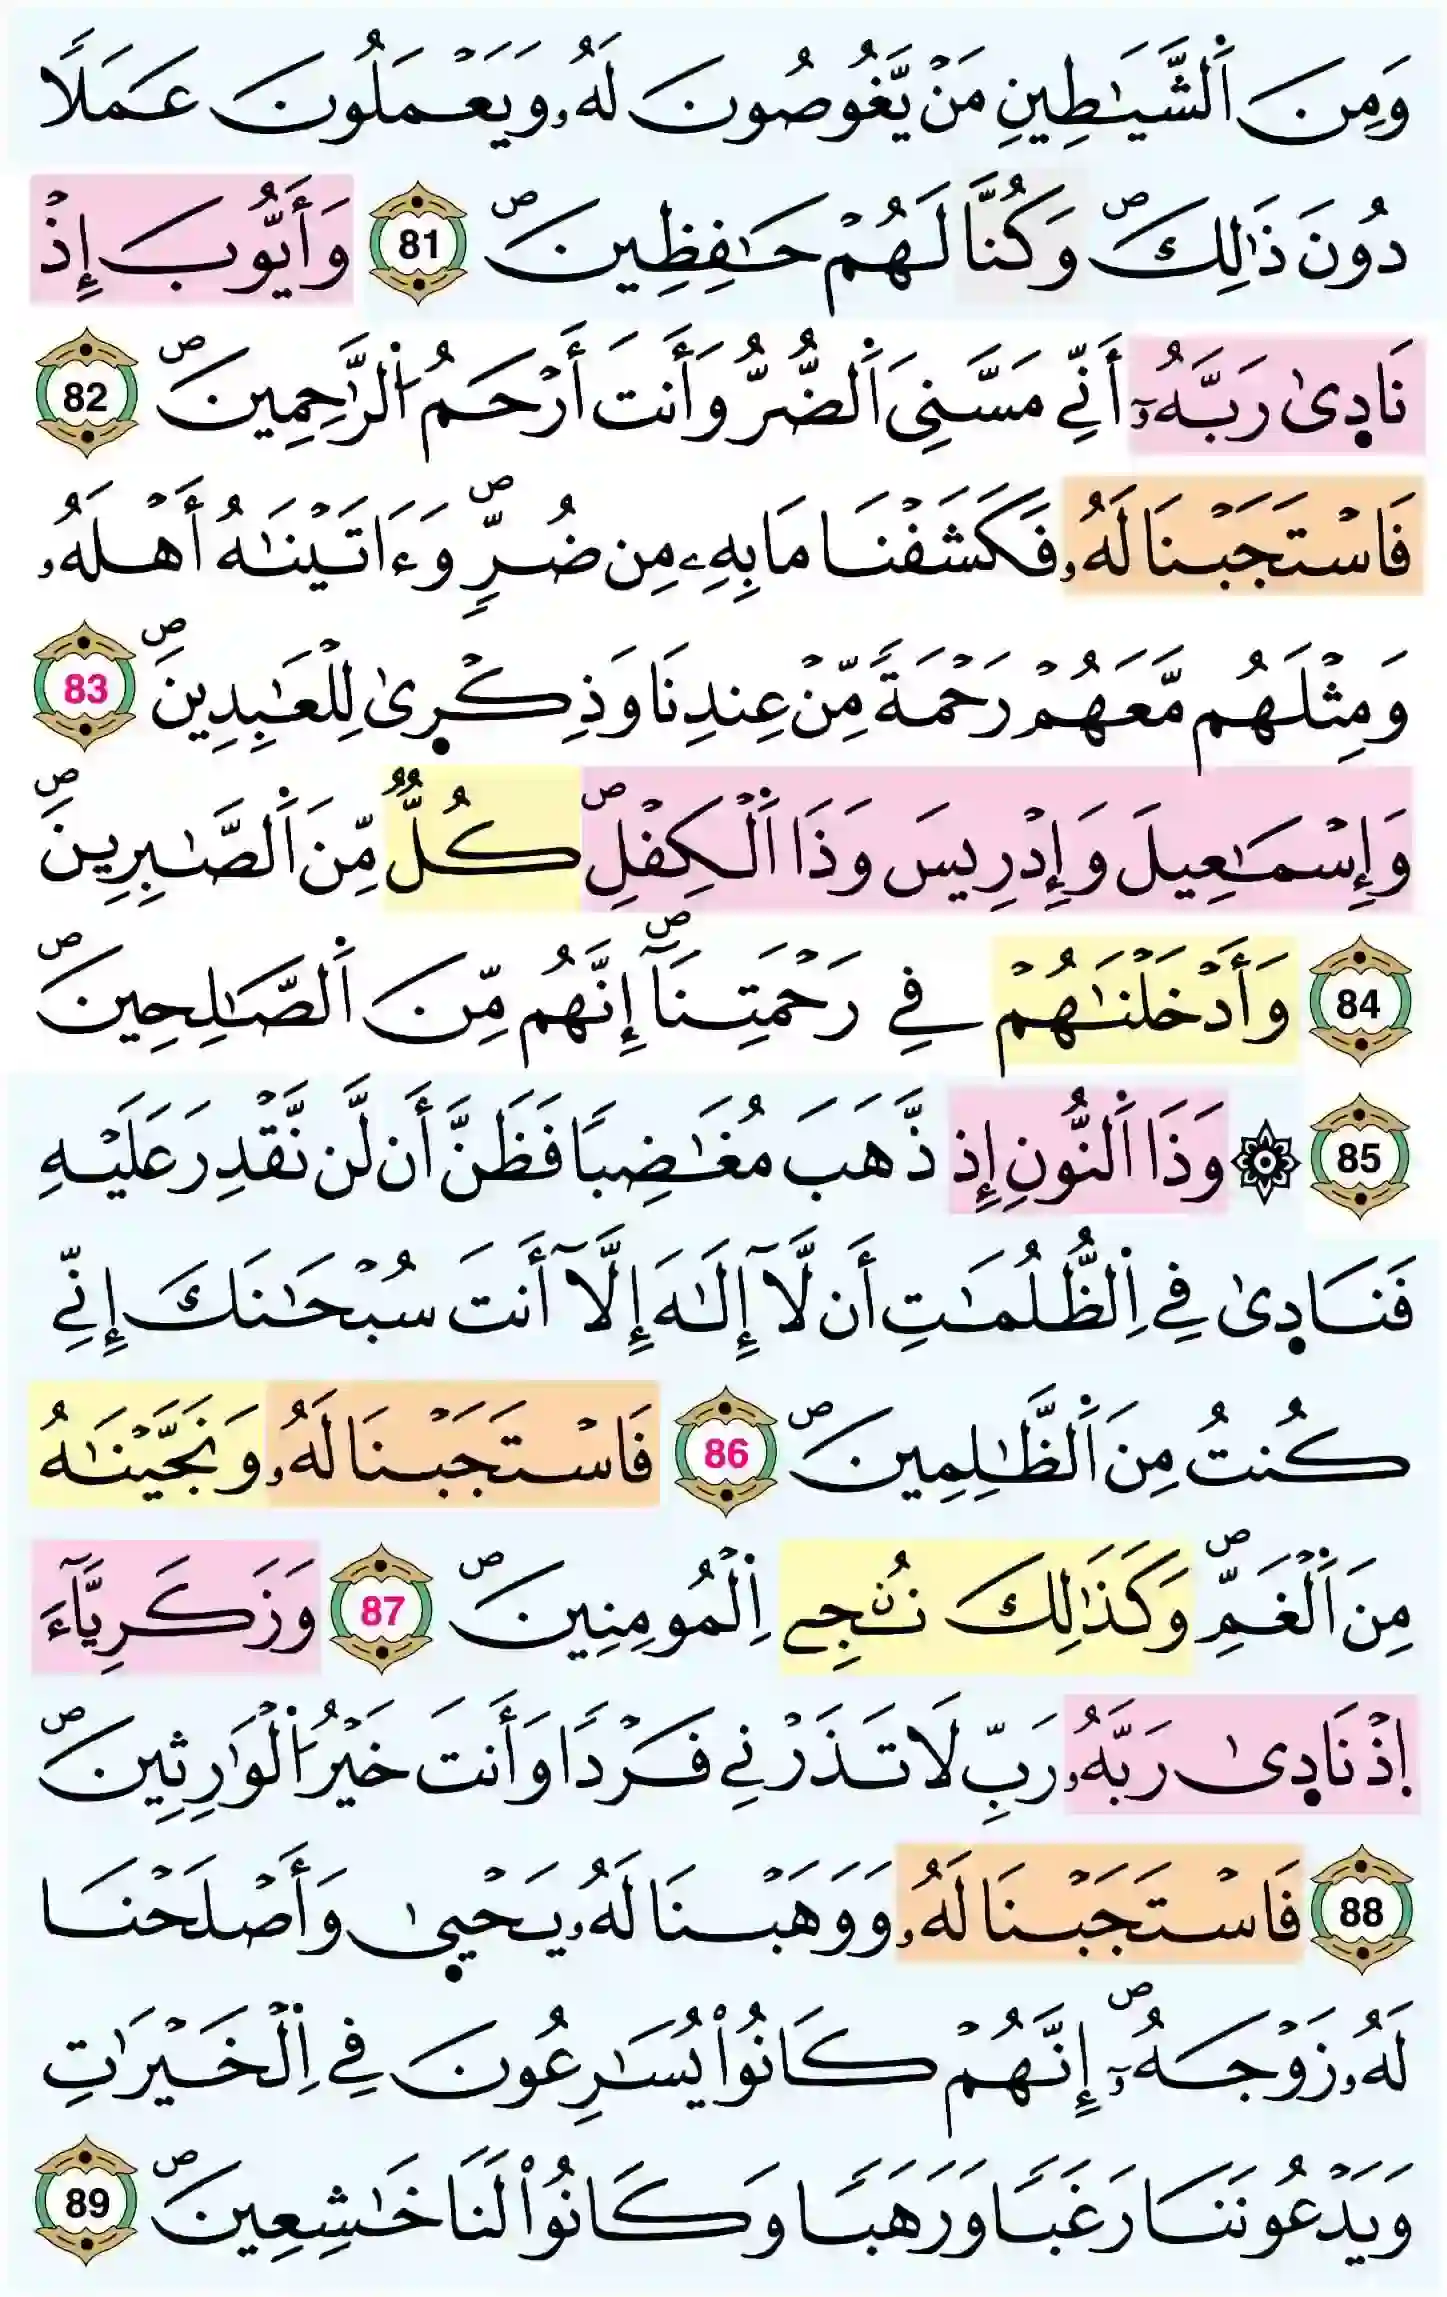 وَمِنَ اَ۬لشَّيَٰطِينِ مَنْ يَّغُوصُونَ لَهُۥ وَيَعْمَلُونَ عَمَلاٗ
دُونَ ذَٰلِكَۖ وَكُنَّا لَهُمْ حَٰفِظِينَۖ 81 وَأَيُّوبَ إِذْ
نَادٜىٰ رَبَّهُۥٓ أَنِّے مَسَّنِيَ اَ۬لضُّرُّ وَأَنتَ أَرْحَمُ اُ۬لرَّٰحِمِينَۖ 82
فَاسْتَجَبْنَا لَهُۥ فَكَشَفْنَا مَا بِهِۦ مِن ضُرّٖۖ وَءَاتَيْنَٰهُ أَهْلَهُۥ
وَمِثْلَهُم مَّعَهُمْ رَحْمَةٗ مِّنْ عِندِنَا وَذِكْرٜىٰ لِلْعَٰبِدِينَۖ 83
وَإِسْمَٰعِيلَ وَإِدْرِيسَ وَذَا اَ۬لْكِفْلِۖ كُلّٞ مِّنَ اَ۬لصَّٰبِرِينَۖ
84 وَأَدْخَلْنَٰهُمْ فِے رَحْمَتِنَآۖ إِنَّهُم مِّنَ اَ۬لصَّٰلِحِينَۖ
85 ۞ وَذَا اَ۬لنُّونِ إِذ ذَّهَبَ مُغَٰضِباٗ فَظَنَّ أَن لَّن نَّقْدِرَ عَلَيْهِ
فَنَادٜىٰ فِے اِ۬لظُّلُمَٰتِ أَن لَّآ إِلَٰهَ إِلَّآ أَنتَ سُبْحَٰنَكَ إِنِّے
كُنتُ مِنَ اَ۬لظَّٰلِمِينَۖ 86 فَاسْتَجَبْنَا لَهُۥ وَنَجَّيْنَٰهُ
مِنَ اَ۬لْغَمِّۖ وَكَذَٰلِكَ نُۨجِے اِ۬لْمُومِنِينَۖ 87 وَزَكَرِيَّآءَ
اِ۪ذْ نَادٜىٰ رَبَّهُۥ رَبِّ لَا تَذَرْنِے فَرْداٗ وَأَنتَ خَيْرُ اُ۬لْوَٰرِثِينَۖ
88 فَاسْتَجَبْنَا لَهُۥ وَوَهَبْنَا لَهُۥ يَحْيٜىٰ وَأَصْلَحْنَا
لَهُۥ زَوْجَهُۥٓۖ إِنَّهُمْ كَانُواْ يُسَٰرِعُونَ فِے اِ۬لْخَيْرَٰتِ
وَيَدْعُونَنَا رَغَباٗ وَرَهَباٗ وَكَانُواْ لَنَا خَٰشِعِينَۖ 89